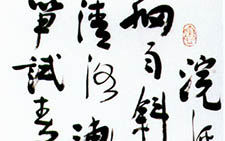 浣溪
細雨斜
清洛漸
筍試春